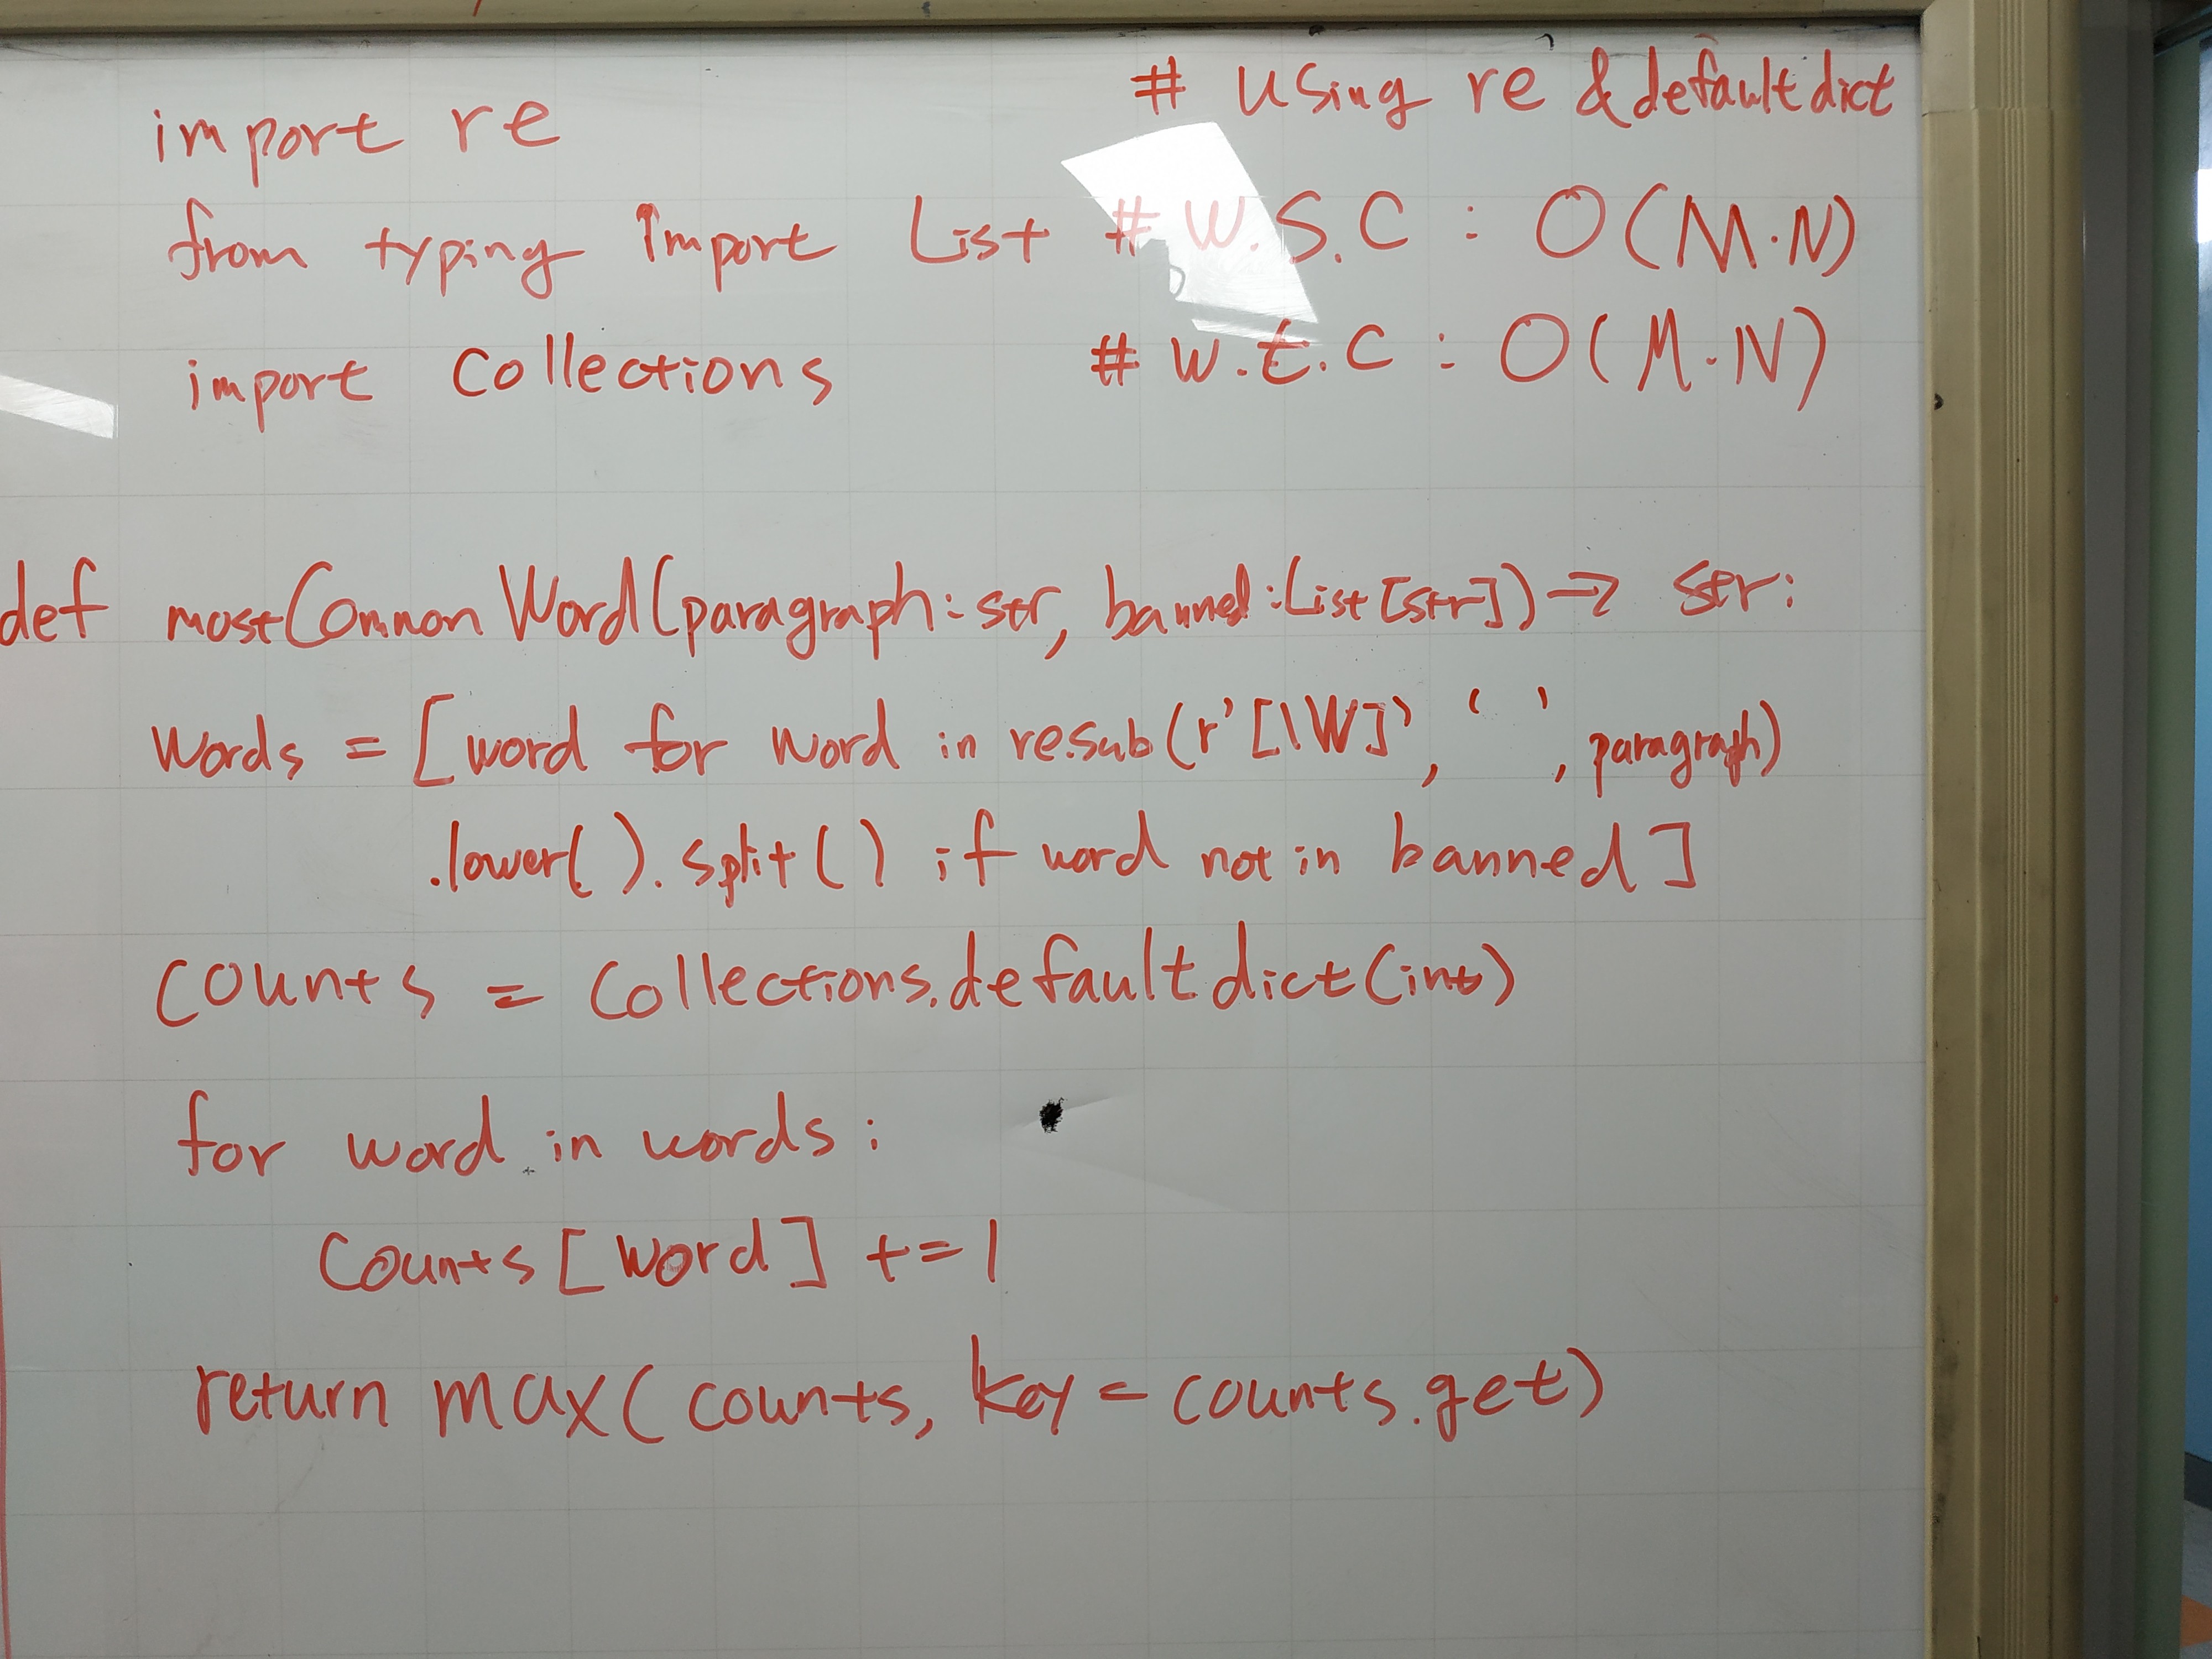 import re # using re & defaultdict
from typing import List # W.S.C : O(M·N)
import collections # w.t.c : O(M·N)
def mostCommonWord(paragraph:str, banned:List[str]) -> str:
words = [word for word in re.sub(r'[\W]', ' ', paragraph)
.lower().split() if word not in banned]
counts = collections.defaultdict(int)
for word in words:
counts[word] +=1
return max(counts, key=counts.get)